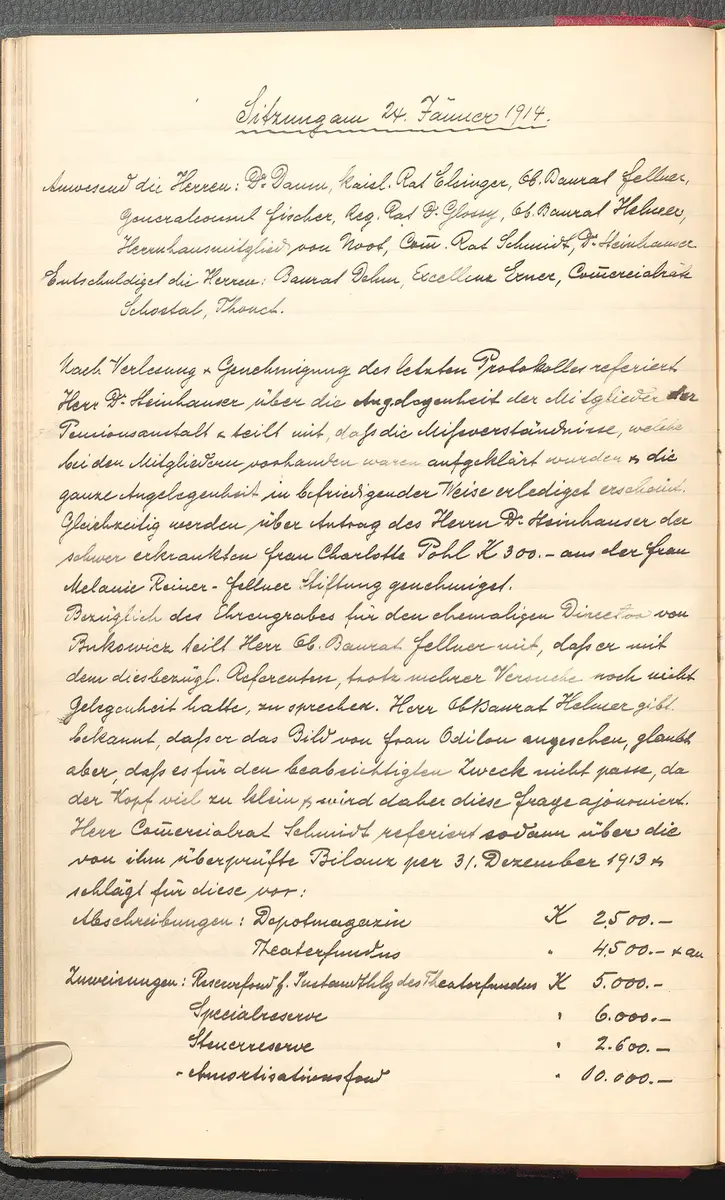 Sitzung am 24. Jänner 1914.
Anwesend die Herren: Dr. Daum, kaisl. Rat Elsinger, Ob. Baurat Fellner,
Generalconsul Fischer, Reg. Rat Dr. Glossy, Ob. Baurat Helmer,
Herrnhausmitglied von Noot, Com̅. Rat Schmidt, Dr. Steinhauser
Entschuldiget die Herren: Baurat Dehm, Excellenz Exner, Com̅ercialräte
Schostal, Thonet.
Nach Verlesung & Genehmigung des letzten Protokolles referiert
Herr Dr. Steinhauser über die Angelegenheit der Mitglieder der
Pensionsanstalt & teilt mit, daß die Mißverständnisse, welche
bei den Mitgliedern vorhanden waren aufgeklärt wurden & die
ganze Angelegenheit in befriedigender Weise erlediget erscheint.
Gleichzeitig werden über Antrag des Herrn Dr. Steinhauser der
schwer erkrankten Frau Charlotte Pohl K 300.- aus der Frau
Melanie Reiner-Fellner Stiftung genehmiget.
Bezüglich des Ehrengrabes für den ehemaligen Director von
Bukowicz teilt Herr Ob. Baurat Fellner mit, daß er mit
dem diesbezügl. Referenten, trotz mehrer Versuche noch nicht
Gelegenheit hatte, zu sprechen. Herr Ob Baurat Helmer gibt
bekannt, daß er das Bild von Frau Odilon angesehen, glaubt
aber, daß es für den beabsichtigten Zweck nicht passe, da
der Kopf viel zu klein & wird daher diese Frage ajouniert.
Herr Com̅ercialrat Schmidt referiert sodann über die
von ihm überprüfte Bilanz per 31. Dezember 1913 &
schlägt für diese vor:
Abschreibungen: Depotmagazin K 2,500.-
Theaterfundus " 4,500.- & an
Zuweisungen: Reservfond f. Instandhltg des Theaterfundus K 5.000.-
Specialreserve " 6.000.-
Steuerreserve " 2.600.-
- Amortisationsfond " 10.000.-